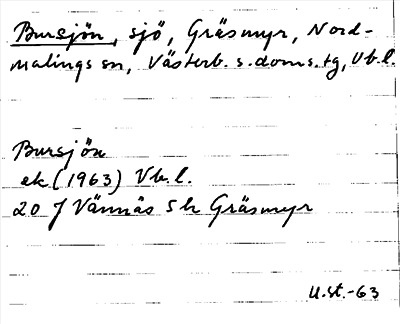 Bursjön, sjö, Gräsmyr, Nord-
malings sn, Västerb. s. doms.tg, Vb.l.
Bursjön
ek (1963) Vb.l.
20 J Vännäs 5 h Gräsmyr
U.st.-63